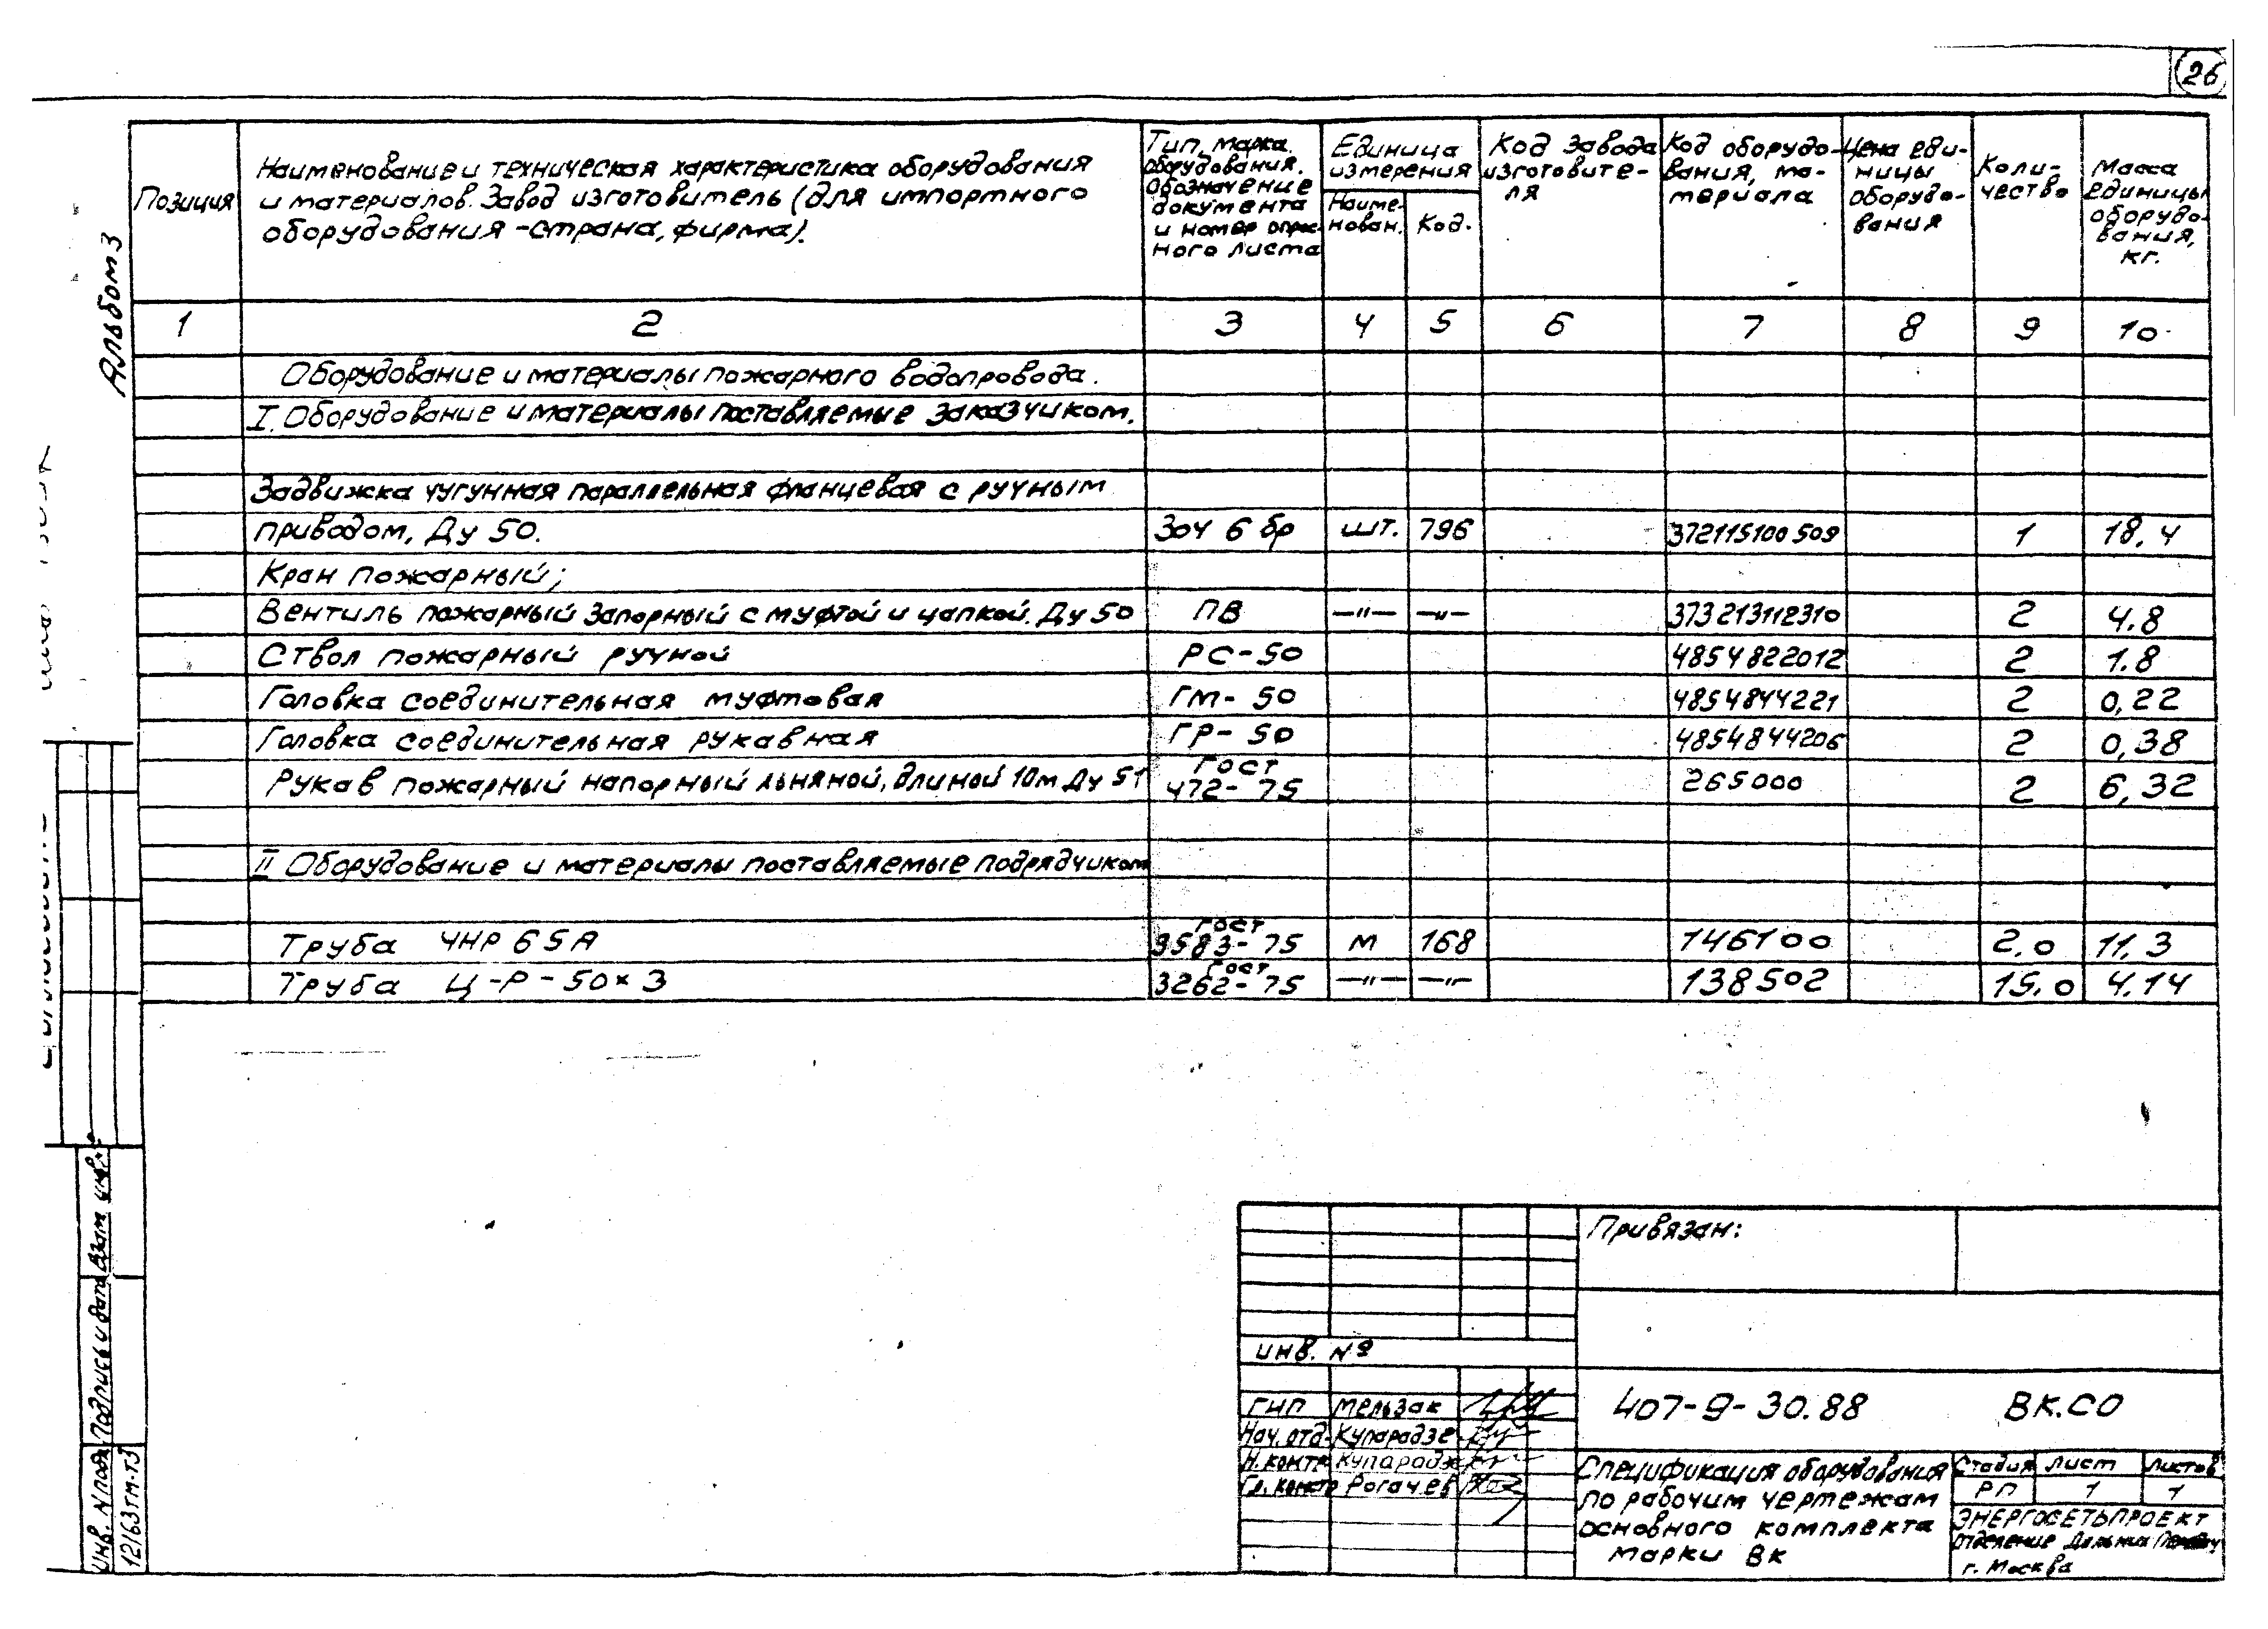 26
Альбом 3
Позиция
Наименование и техническая характеристика оборудования
и материалов. Завод изготовитель (для импортного
оборудования - страна, фирма).
Тип, марка.
оборудования.
Обозначение
документа
и номер опрос-
ного листа
Единица
измерения
Наиме-
нован.
Код.
Код завода
изготовите-
ля
Код оборудо-
вания, ма-
териала
Цена еди-
ницы
оборудо-
вания
Коли-
чество
Масса
единицы
оборудо-
вания,
кг.
1 2 3 4 5 6 7 8 9 10
Оборудование и материалы пожарного водопровода.
I. Оборудование и материалы поставляемые заказчиком.
Задвижка чугунная параллельная фланцевая с ручным
приводом, Ду 50. 30ч 6 бр шт. 796 372115100509 1 18,4
Кран пожарный;
Вентиль пожарный запорный с муфтой и цапкой. Ду 50 ПВ —"— —"— 373213112310 2 4.8
Ствол пожарный ручной РС-50 4854822012 2 1.8
Головка соединительная муфтовая ГМ-50 4854844221 2 0,22
Головка соединительная рукавная ГР-50 4854844206 2 0,38
Рукав пожарный напорный льняной, длиной 10м Ду 51 ГОСТ 472-75 265000 2 6,32
II Оборудование и материалы поставляемые подрядчиком
Труба ЧНР 65А ГОСТ 9583-75 м 168 146100 2.0 11,3
Труба Ц-Р-50×3 ГОСТ 3262-75 —"— —"— 138502 15.0 4.14
Взам инв.
Подпись и дата
Инв. N подл.
12163тм-т3
Привязан:
инв. №
ГИП Мельзак
Нач. отд. Купарадзе
Н. контр Купарадзе
Гл. констр Рогачев
407-9-30.88 ВК.СО
Спецификация оборудования
по рабочим чертежам
основного комплекта
марки ВК
Стадия Лист Листов
РП 1 1
ЭНЕРГОСЕТЬПРОЕКТ
отделение Дальних
г. Москва